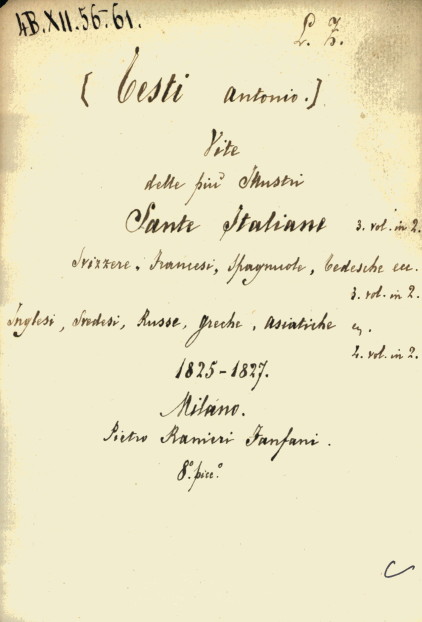 4B.XII.56-61.
L. Z.
[Testi antonio.]
Vite
delle più Illustri
Sante Italiane 3. vol. in 2.
Svizzere, Francesi, Spagnuole, tedesche ecc.
3. vol. in 2.
Inglesi, Svedesi, Russe, greche, asiatiche
2. vol. in 2.
1825-1827.
Milano.
Pietro Ranieri Fanfani.
8.° picc.°